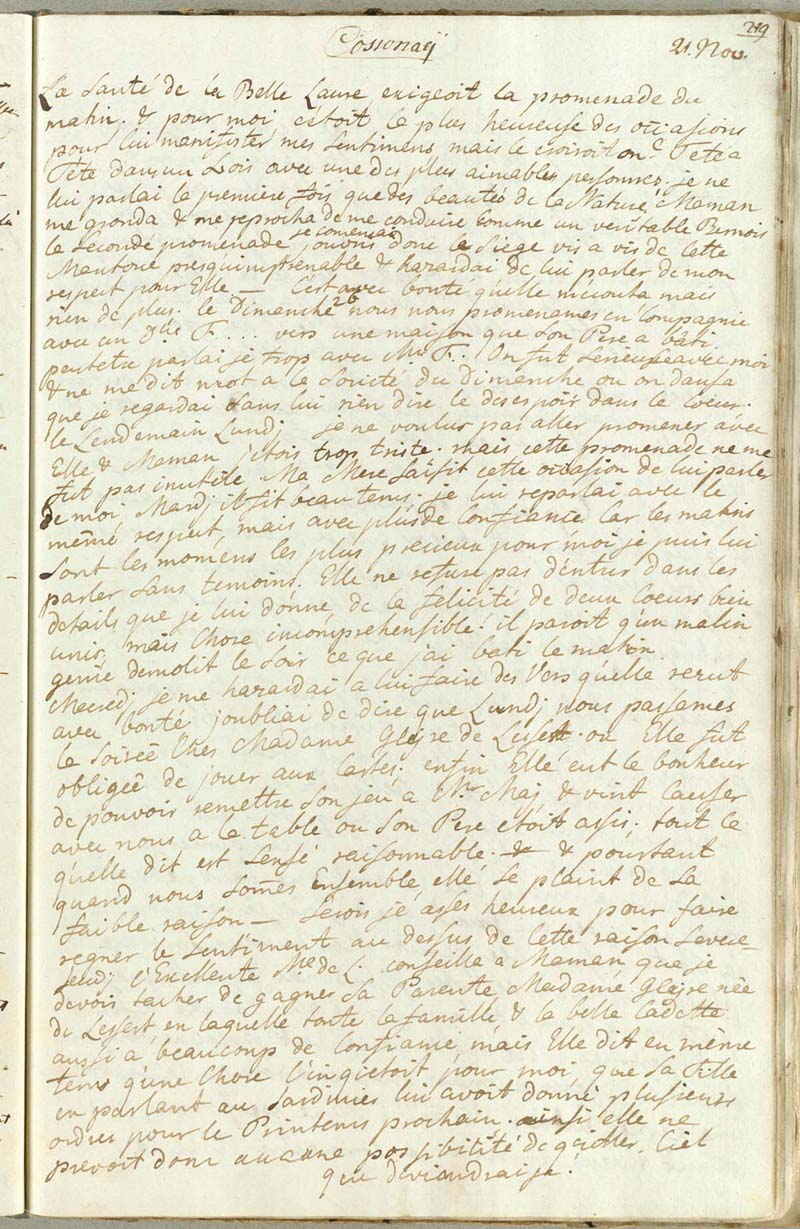 219
Cossonaÿ
21. Nov.
La Santé de la Belle Laure exigeoit la promenade du
matin. & pour moi c'étoit le plus heureuse des occasions
pour lui manifester mes Sentimens, mais le croiroit on? Tete a
Tête dans un Bois avec une des plus aimables personnes. je ne
lui parlai le premiere fois que des beautés de la Nature, Maman
me gronda & me reprocha de me conduire comme un veritable Bernois
le seconde promenade je comencai donc le Siege vis a vis de cette
Mantoue presqu'imprenable & hazardai de lui parler de mon
respect pour Elle — C'est avec bonté qu'elle m'ecouta mais
rien de plus. le Dimanche 26 nous nous promenames en Compagnie
avec un Dlle F.... vers une maison que Son Pere a bâti.
peutetre parlai je trop avec F.. On fut Serieuse avec moi
& ne me dit mot a le Societé du Dimanche ou on dansa
que je regardai Sans lui rien dire le desespoir dans le Coeur.
le Lendemain Lundj je ne voulus pas aller promener avec
Elle & Maman j'etois trop triste. mais cette promenade ne me
fut pas inutile Ma Mere Saisit cette occasion de lui parler
de moi. Mardj il fit beau tems. je lui reparlai avec le
même respect, mais avec plus de Confiance. Car les matins
Sont les momens les plus precieux pour moi je puis lui
parler Sans temoins. Elle ne refuse pas d'entrer dans les
details que je lui donne de la felicité de deux Coeurs bien
unis, mais Chose incomprehensible! il paroit q'un malin
genie demolit le Soir ce que j'ai bati le matin.
Mecredj je me hazardai a lui faire des Vers qu'elle recut
avec bonté j'oubliai de dire que Lundj nous passames
le Soirée Ches Madame Gleyre de Lesert. ou Elle fut
obligée de jouer aux Cartes; enfin Elle eut le bonheur
de pouvoir remettre Son jeu a Mr & vint Causer
avec nous a le table ou Son Pere etoit assis. tout ce
qu'elle dit est Sensé raisonnable. & & pourtant
quand nous Somes Ensemble elle Se plaint de Sa
faible raison — Serois je assés heureux pour faire
regner le Sentiment au dessus de Cette raison Severe —
Jeudj l'Excellente Me de L. conseilla a Maman que je
devois tacher de gagner Sa Parente Madame Gleyre née
de Lesert, en laquelle toute la famille & la belle Cadette
aussi a beaucoup de Confiance, mais Elle dit en même
tems q'une Chose l'inqietoit pour moi, que Sa fille
en parlant au Jardinier lui avoit donné plusieurs
ordres pour le Printems prochain. ainsi elle ne
prevoit donc aucune possibilité de qitter. Ciel
que deviendrai je!